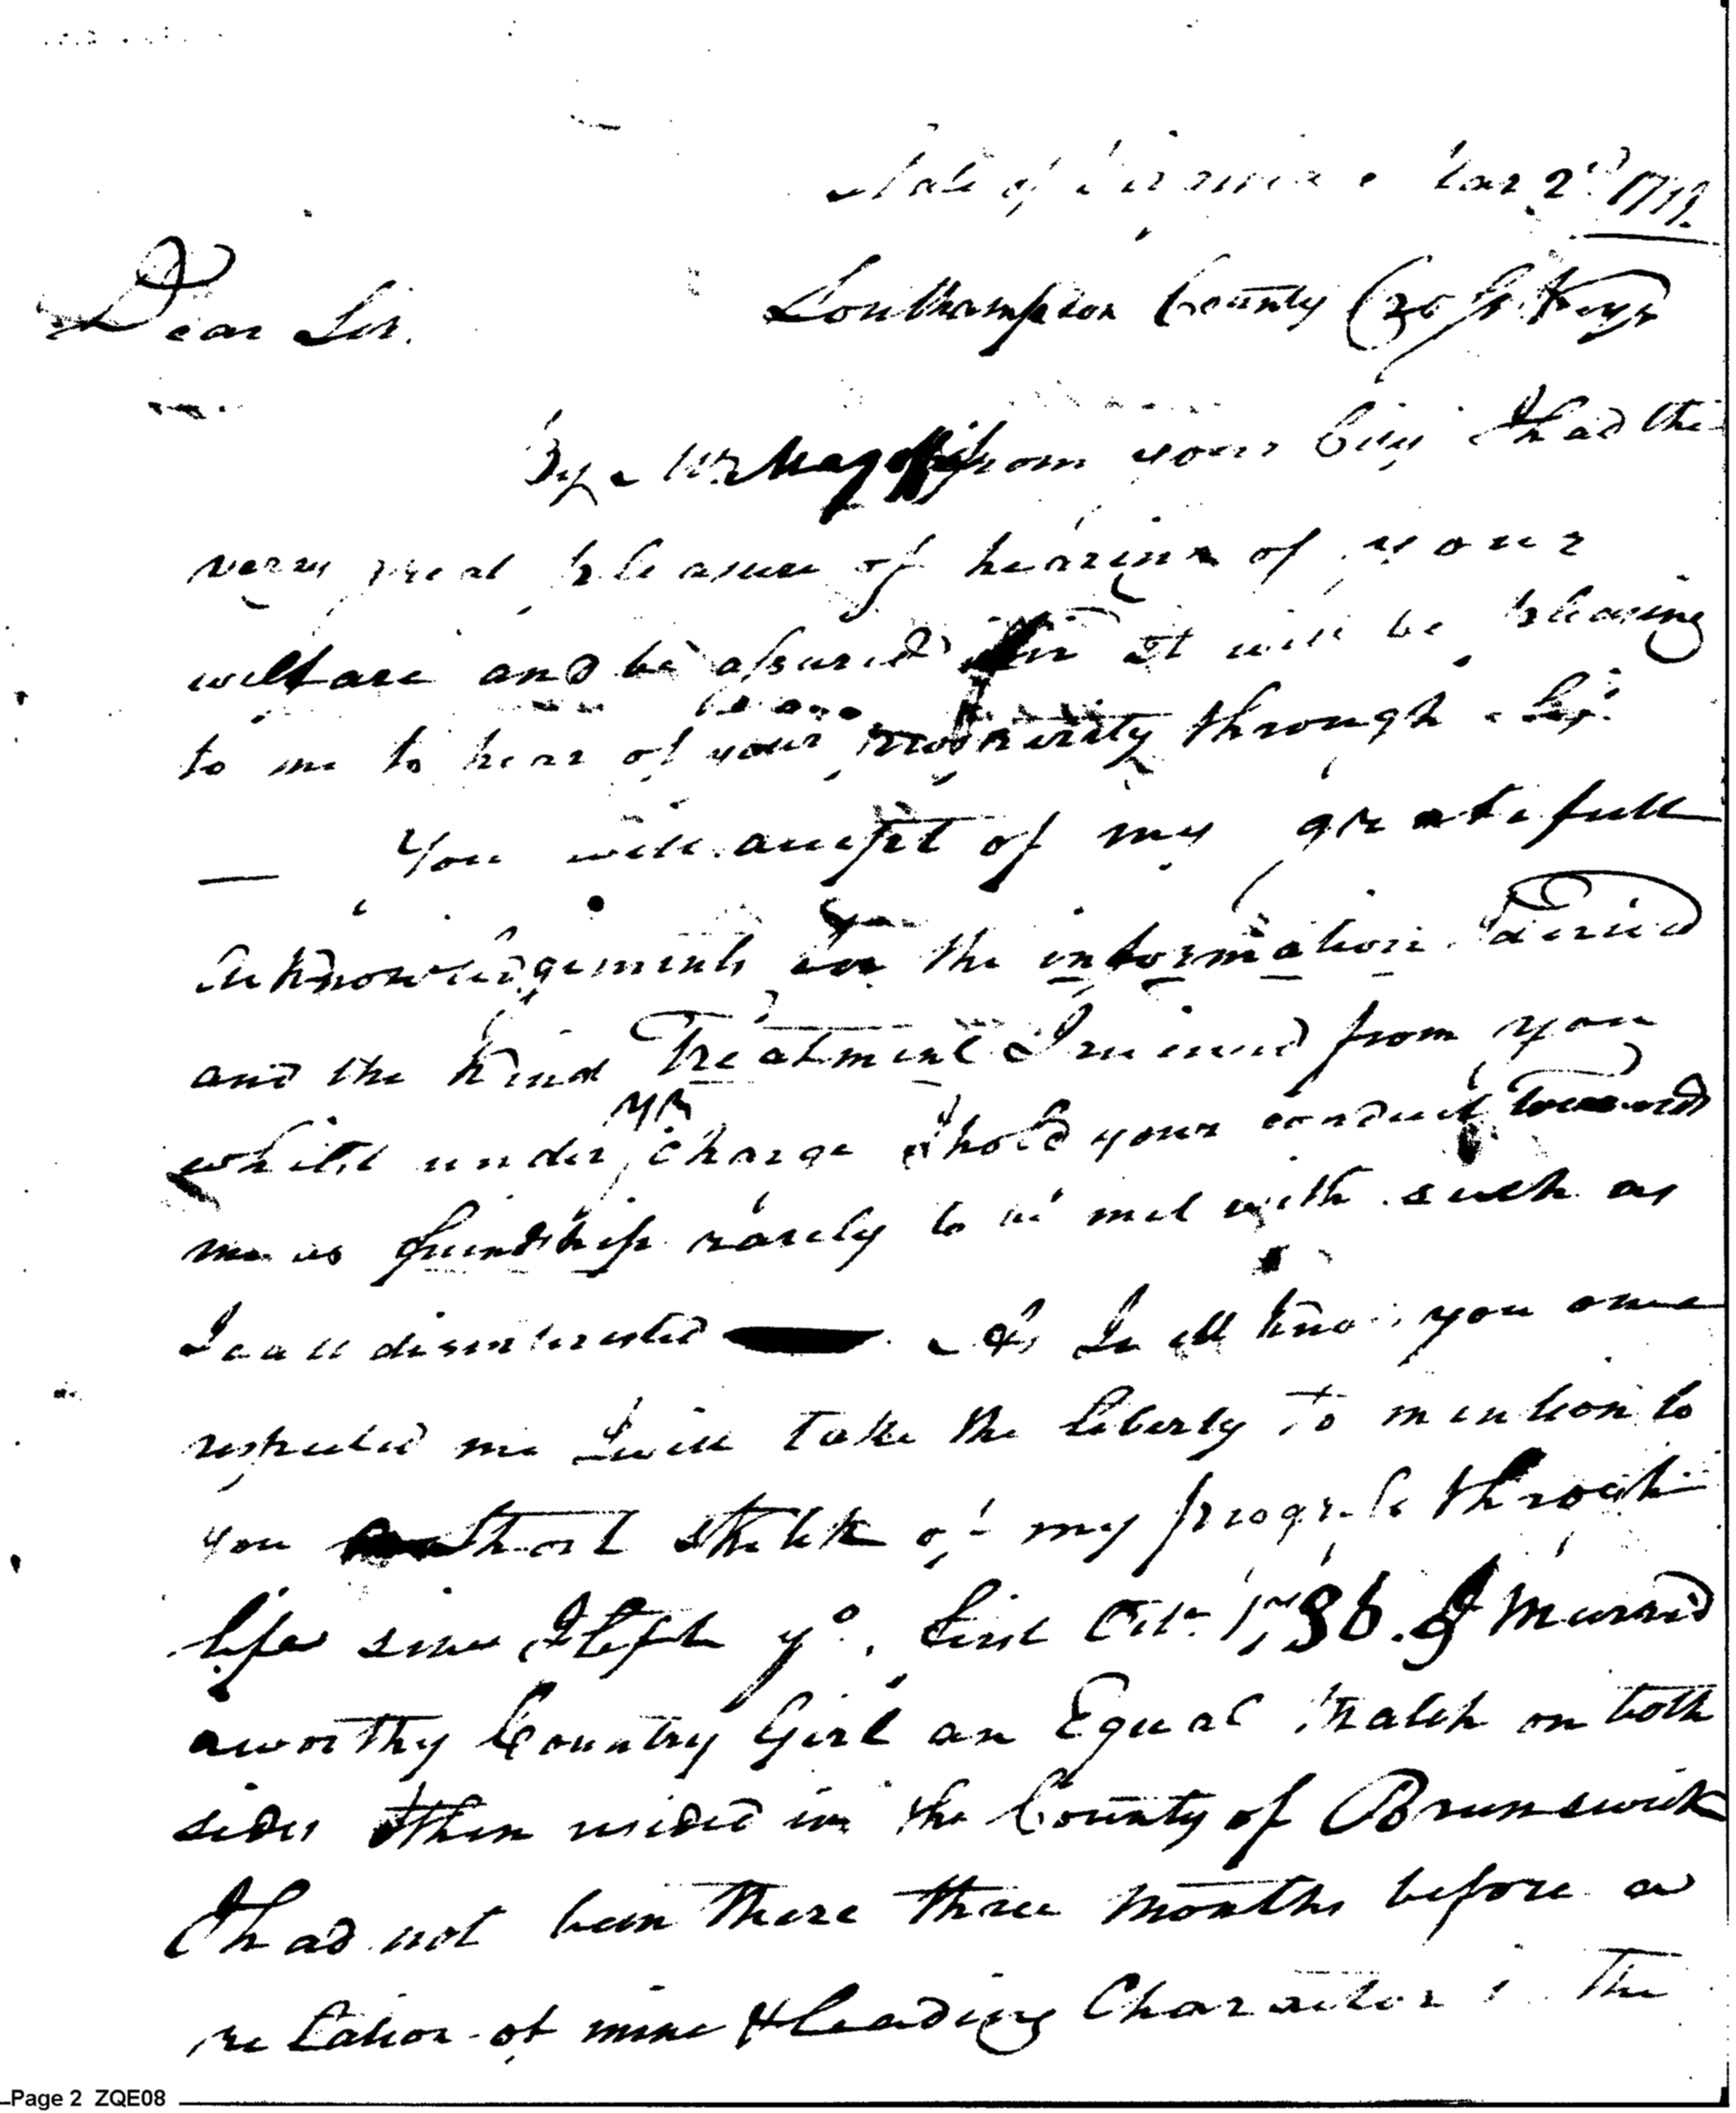 State of Virginia Mar 2d
Southampton County
Dear Sir.
By a Mr from your City I had the
very great pleasure of hearing of your
welfare and be assured Sir It will be pleasing
to me to hear of your prosperity through
You will accept of my gratefull
Acknowledgements for the information
and the kind Treatment I received from you
whilst under yr charge I hold your conduct towards
me as friendship rarely to be met with such as
I call disinterested As I well know you once
respected me I will take the liberty to mention to
you short of my progress through
life since I left yo. first Octr. 1786. I Married
a worthy Country Girl an Equal Match on both
sides I then resided in the County of Brunswick
I had not been There three Months before a
relation of mine & leading Character in The
Page 2 ZQE08